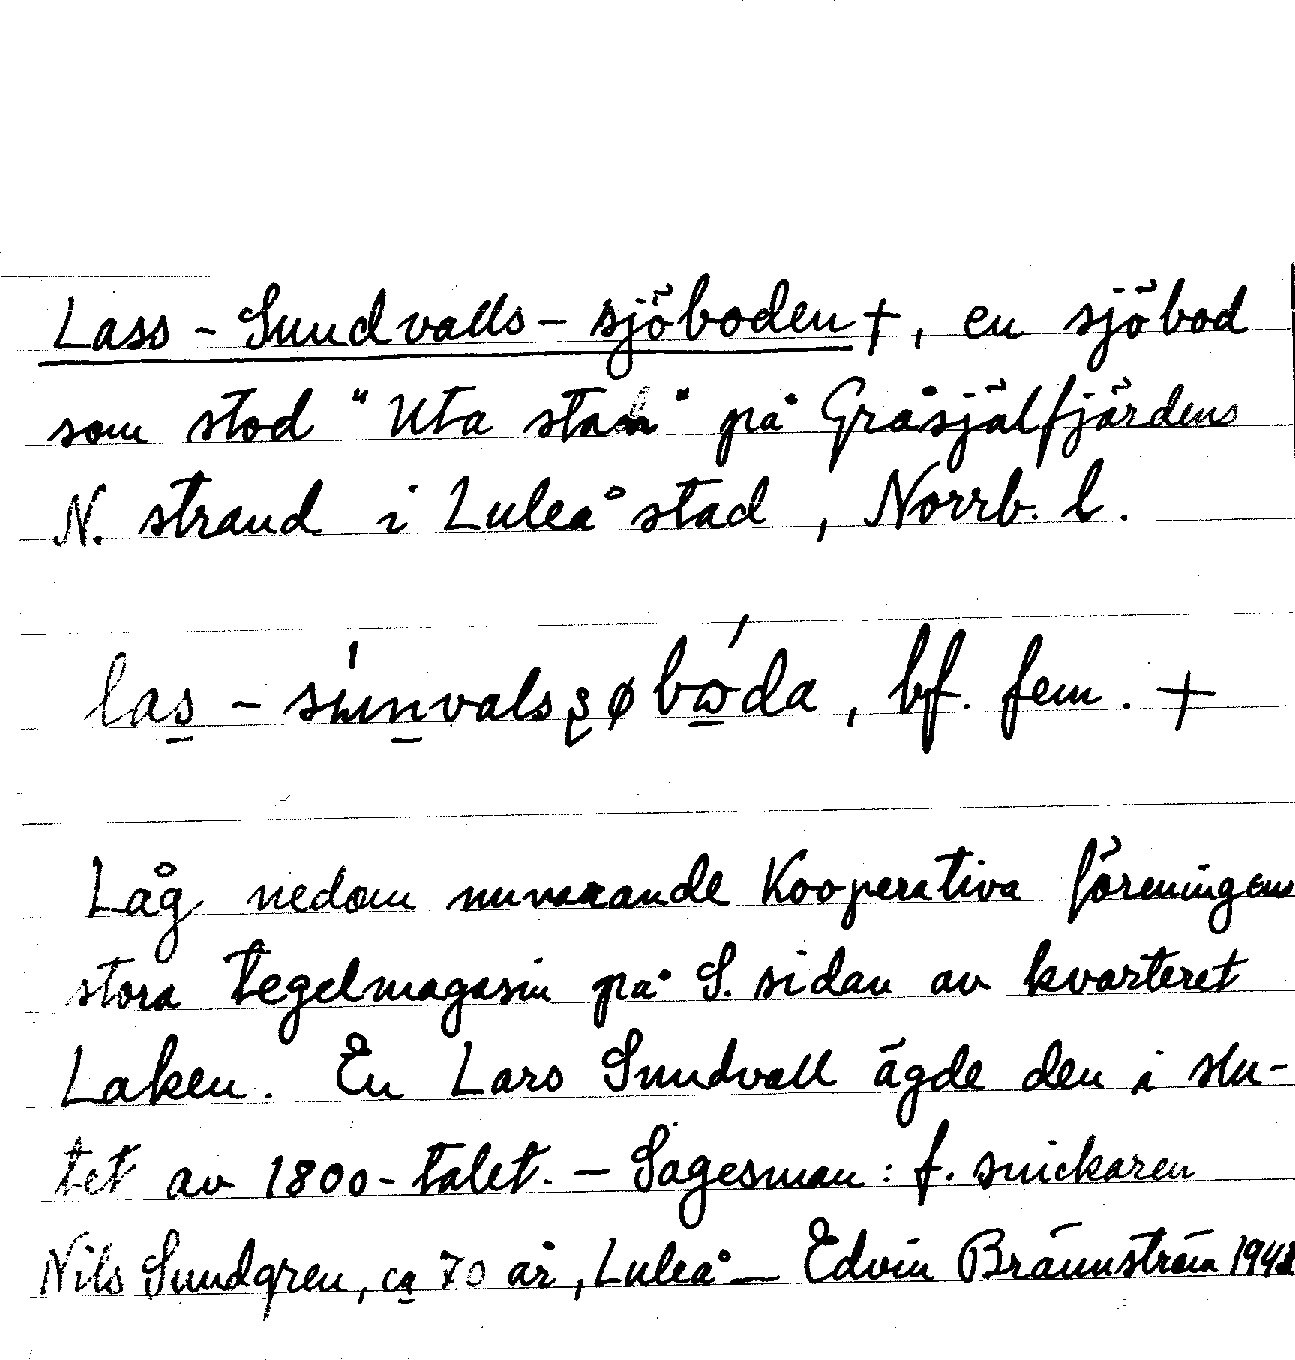 Lass-Sundvalls-sjöboden +, en sjöbod
som stod "Uta stan" på Gråsjälfjärdens
N. strand i Luleå stad, Norrb. l.
las̲ - súnn̲vals ʂøbώ̲da, bf. fem. +
Låg nedom nuvarande Kooperativa föreningens
stora tegelmagasin på S. sidan av kvarteret
Laken. En Lars Sundvall ägde den i slu-
tet av 1800-talet. – Sagesman: f. snickaren
Nils Sundgren, ca 70 år, Luleå – Edvin Brännström 1948